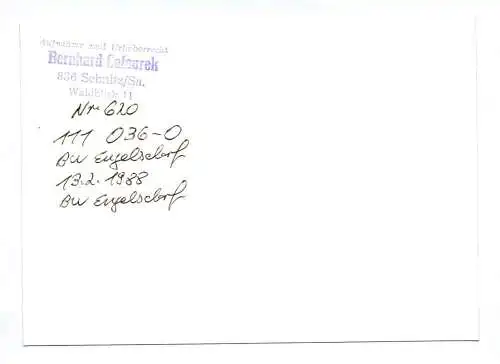 Aufnahme und Urheberrecht
Bernhard
836 Sebnitz/Sa.
Waldblick 11
Nr 620
111 036-0
BW Engelsdorf
13.2.1988
BW Engelsdorf